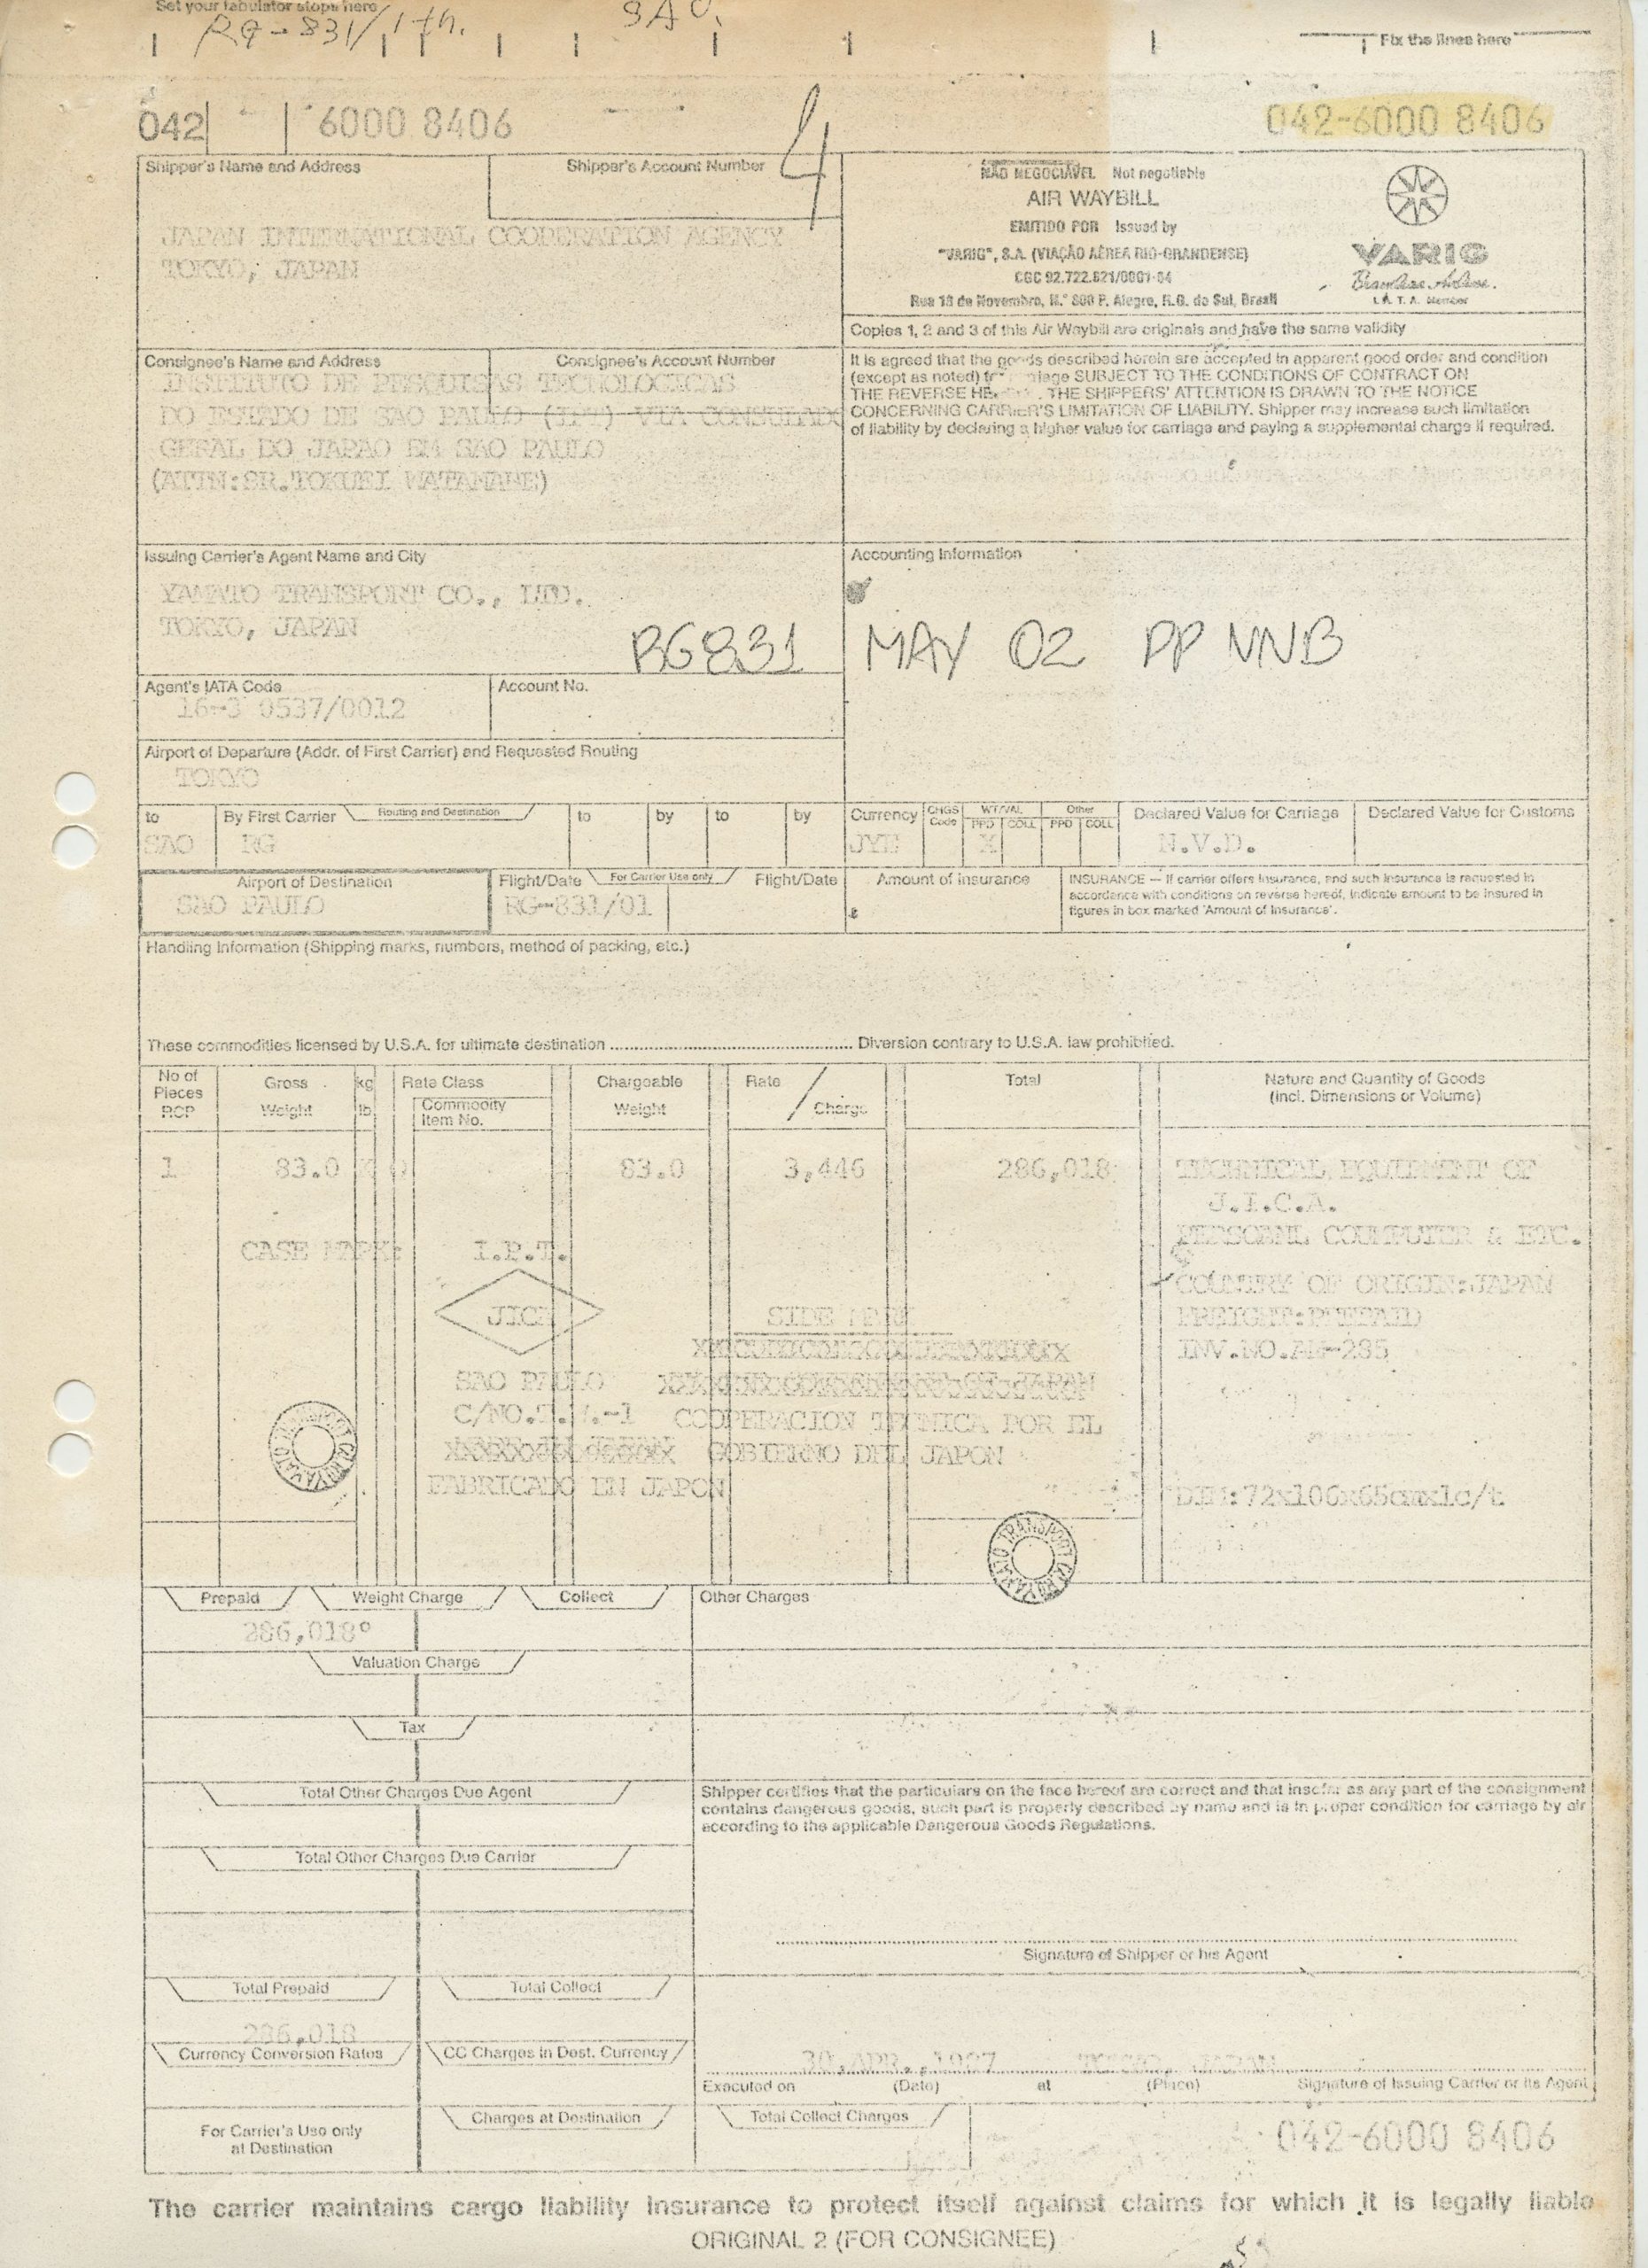 Set your tabulator stops here
RG-831/1th. SAO.
Fix the lines here
042 6000 8406
4
042-6000 8406
Shipper's Name and Address
Shipper's Account Number
JAPAN INTERNATIONAL COOPERATION AGENCY
TOKYO, JAPAN
NÃO NEGOCIÁVEL Not negotiable
AIR WAYBILL
EMITIDO POR Issued by
"VARIG", S.A. (VIAÇÃO AÉREA RIO-GRANDENSE)
CGC 92.772.821/0001-64
Rua 18 de Novembro, N.º 800 P. Alegre, R.G. do Sul, Brasil
VARIG
Brazilian Airlines.
I. A. T. A. Member
Copies 1, 2 and 3 of this Air Waybill are originals and have the same validity
Consignee's Name and Address
Consignee's Account Number
INSTITUTO DE PESQUISAS TECNOLOGICAS
DO ESTADO DE SAO PAULO (IPT) VIA CONSULADO
GERAL DO JAPAO EM SAO PAULO
(ATTN:SR.TOKUEI WATANABE)
It is agreed that the goods described herein are accepted in apparent good order and condition
(except as noted) for carriage SUBJECT TO THE CONDITIONS OF CONTRACT ON
THE REVERSE HEREOF. THE SHIPPERS' ATTENTION IS DRAWN TO THE NOTICE
CONCERNING CARRIER'S LIMITATION OF LIABILITY. Shipper may increase such limitation
of liability by declaring a higher value for carriage and paying a supplemental charge if required.
Issuing Carrier's Agent Name and City
YAMATO TRANSPORT CO., LTD.
TOKYO, JAPAN
Accounting Information
RG831 MAY 02 PP NNB
Agent's IATA Code
Account No.
16-3 0537/0012
Airport of Departure (Addr. of First Carrier) and Requested Routing
TOKYO
to By First Carrier Routing and Destination to by to by
SAO RG
Currency CHGS Code WT/VAL PPD COLL Other PPD COLL Declared Value for Carriage Declared Value for Customs
JYE X N.V.D.
Airport of Destination
SAO PAULO
Flight/Date For Carrier Use only Flight/Date
RG-831/01
Amount of Insurance
INSURANCE — If carrier offers insurance, and such insurance is requested in
accordance with conditions on reverse hereof, indicate amount to be insured in
figures in box marked 'Amount of Insurance'.
Handling Information (Shipping marks, numbers, method of packing, etc.)
These commodities licensed by U.S.A. for ultimate destination .......... Diversion contrary to U.S.A. law prohibited.
No of Pieces RCP
Gross Weight
kg lb
Rate Class
Commodity Item No.
Chargeable Weight
Rate / Charge
Total
Nature and Quantity of Goods
(Incl. Dimensions or Volume)
1 83.0 K Q 83.0 3,446 286,018
TECHNICAL EQUIPMENT OF
J.I.C.A.
PERSONL COUMPUTER & ETC.
COUNTRY OF ORIGIN:JAPAN
FREIGHT:PREPAID
INV.NO.AH-285
DIM:72x106x65cmx1c/t
CASE MARK: I.P.T.
JICA
SAO PAULO
C/NO.T.W.-1
FABRICADO EN JAPON
SIDE MARK
COOPERACION TECNICA POR EL
GOBIERNO DEL JAPON
YAMATO TRANSPORT CO.
YAMATO TRANSPORT CO.
Prepaid Weight Charge Collect
286,018
Other Charges
Valuation Charge
Tax
Total Other Charges Due Agent
Total Other Charges Due Carrier
Shipper certifies that the particulars on the face hereof are correct and that insofar as any part of the consignment
contains dangerous goods, such part is properly described by name and is in proper condition for carriage by air
according to the applicable Dangerous Goods Regulations.
Signature of Shipper or his Agent
Total Prepaid Total Collect
286,018
Currency Conversion Rates CC Charges in Dest. Currency
30.APR.,1987 TOKYO, JAPAN
Executed on (Date) at (Place) Signature of Issuing Carrier or its Agent
For Carrier's Use only
at Destination
Charges at Destination Total Collect Charges
042-6000 8406
The carrier maintains cargo liability insurance to protect itself against claims for which it is legally liable
ORIGINAL 2 (FOR CONSIGNEE)